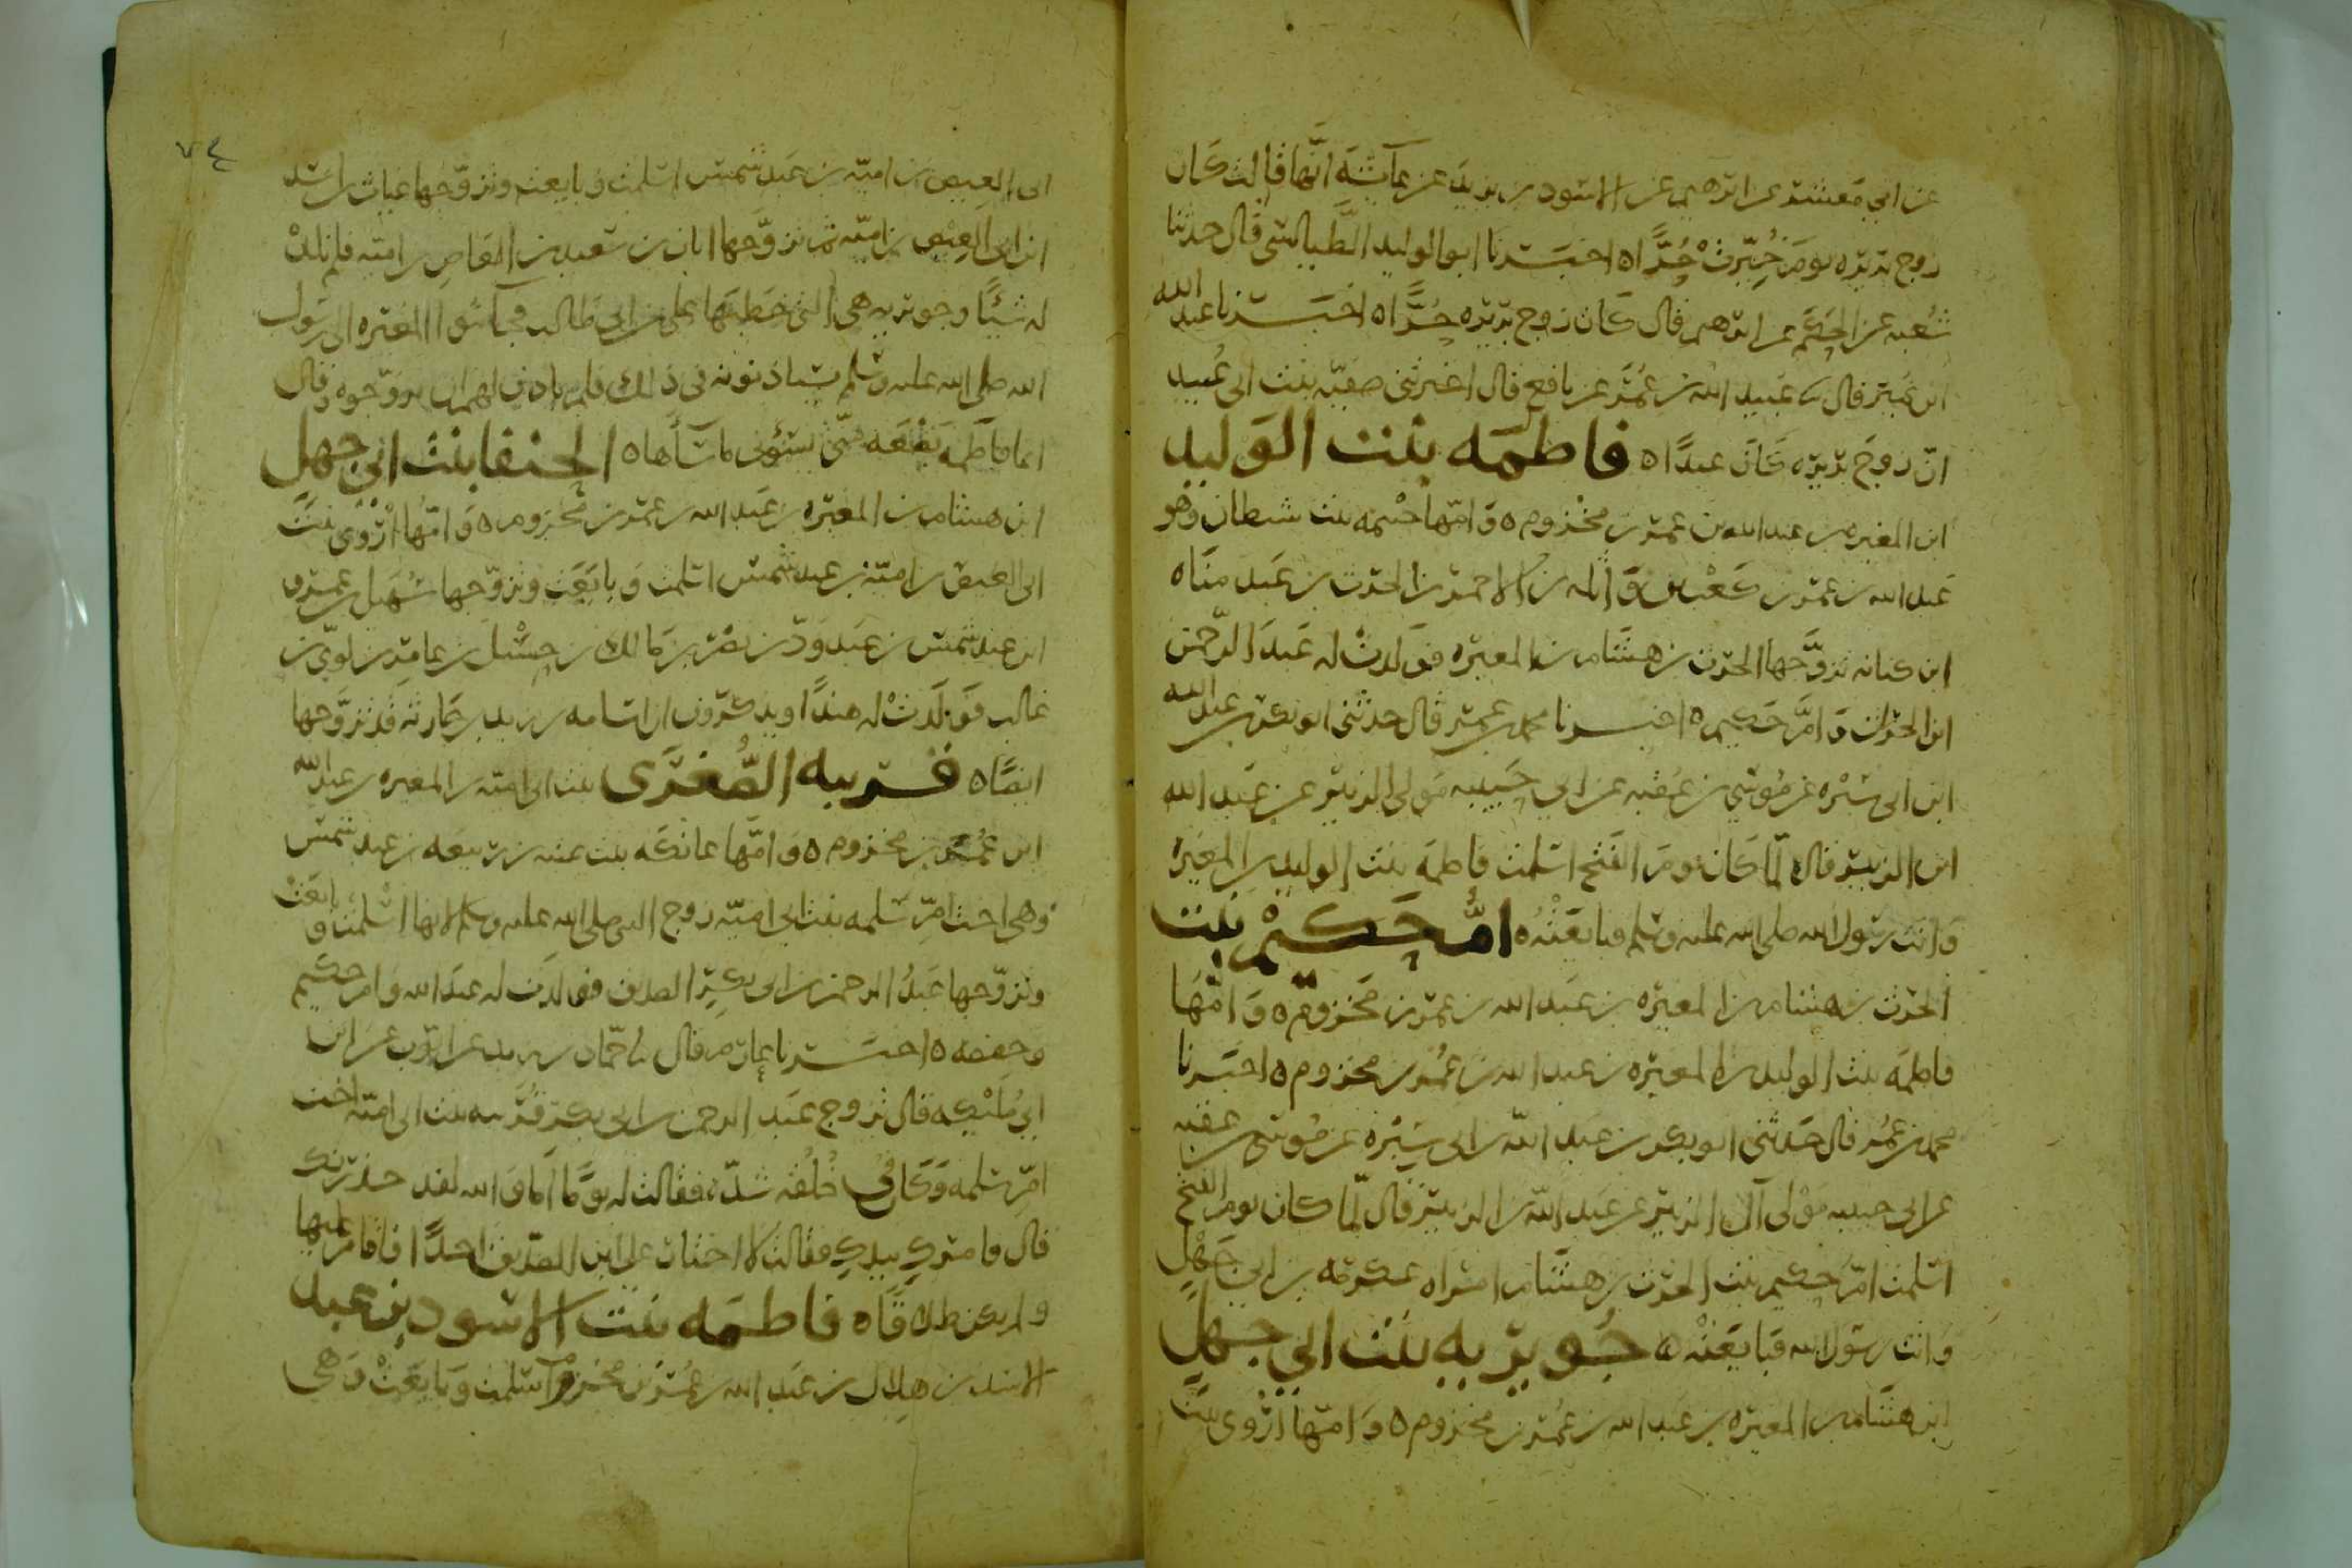 عن ابي معشر عن ابرهيم عن الاسود بن يزيد عن عآئشة انها قالت كان
زوج بريره يوم خُيّرت حُرًّا ه اخبرنا ابو الوليد الطيالسي قال حدثنا
شعبه عن الحكم عن ابرهيم قال كان زوج بريره حُرًّا ه اخبرنا عبد الله
ابن نمير قال نا عبيد الله بن عمر عن نافع قال اخبرتني صفيه بنت ابي عبيد
انّ زوج بريره كان عبدًا ه فاطمه بنت الوليد
ابن المغيره بن عبد الله بن عمر بن مخزوم ه وامّها حنتمه بنت شيطان وهو
عبد الله بن عمر بن كعب بن واثله بن الاحمر بن الحرث بن عبد مناه
ابن كنانه تزوّجها الحرث بن هشام بن المغيره فولدت له عبد الرحمن
ابن الحرث وامّ حكيم ه اخبرنا محمد بن عمر قال حدثني ابو بكر بن عبد الله
ابن ابي سبره عن موسى بن عقبه عن ابي حبيبه مولى الزبير عن عبد الله
ابن الزبير قال لمّا كان يوم الفتح اسلمت فاطمه بنت الوليد بن المغيره
واتت رسول الله صلى الله عليه وسلم فبايعته ه امّ حكيم بنت
الحرث بن هشام بن المغيره بن عبد الله بن عمر بن مخزوم ه وامّها
فاطمه بنت الوليد بن المغيره بن عبد الله بن عمر بن مخزوم ه اخبرنا
محمد بن عمر قال حدثني ابو بكر بن عبد الله بن ابي سبره عن موسى بن عقبه
عن ابي حبيبه مولى آل الزبير عن عبد الله بن الزبير قال لمّا كان يوم الفتح
اسلمت امّ حكيم بنت الحرث بن هشام امراه عكرمه بن ابي جهل
واتت رسول الله فبايعته ه جويريه بنت ابي جهل
ابن هشام بن المغيره بن عبد الله بن عمر بن مخزوم ه وامّها اروى بنت
٧٤
ابي العيص بن اميّه بن عبد شمس اسلمت وبايعت وتزوّجها عتاب بن اسيد
ابن ابي العيص بن اميّه ثم تزوّجها ابان بن سعيد بن العاص بن اميه فلم تلد
له شيئًا وجويريه هي التي خطبها علي بن ابي طالب فجآءوا بنو المغيره الى رسول
الله صلى الله عليه وسلم يستاذنونه في ذلك فلم ياذن لهم ان يزوّجوه وقال
انما فاطمه بضعه منّي يسوءني ما سآءها ه الحنفا بنت ابي جهل
ابن هشام بن المغيره بن عبد الله بن عمر بن مخزوم ه وامّها اروى بنت
ابي العيص بن اميّه بن عبد شمس اسلمت وبايعت وتزوّجها سهيل بن عمرو
ابن عبد شمس بن عبد ودّ بن نصر بن مالك بن حسل بن عامر بن لوي بن
غالب فولدت له هندًا ويذكرون ان اسامه بن زيد بن حارثه قد تزوّجها
ايضًا ه قريبه الصّغرى بنت ابي اميّه بن المغيره بن عبد الله
ابن عمر بن مخزوم ه وامّها عاتكه بنت عتبه بن ربيعه بن عبد شمس
وهي اخت امّ سلمه بنت ابي اميّه زوج النبي صلى الله عليه وسلم لابيها اسلمت وبايعت
وتزوّجها عبد الرحمن بن ابي بكر الصديق فولدت له عبد الله وام حكيم
وحفصه ه اخبرنا عارم قال نا حمّاد بن زيد عن ايّوب عن ابن
ابي مليكه قال تزوج عبد الرحمن بن ابي بكر قريبه بنت ابي اميّه اخت
امّ سلمه وكان في خُلُقه شدّه فقالت له يومًا اما والله لقد حذرتك
قال فامرك بيدك فقالت لا اختار على ابن الصّديق احدًا فاقام عليها
ولم يكن طلاقًا ه فاطمه بنت الاسود بن عبد
الاسد بن هلال بن عبد الله بن عمر بن مخزوم اسلمت وبايعت وهي